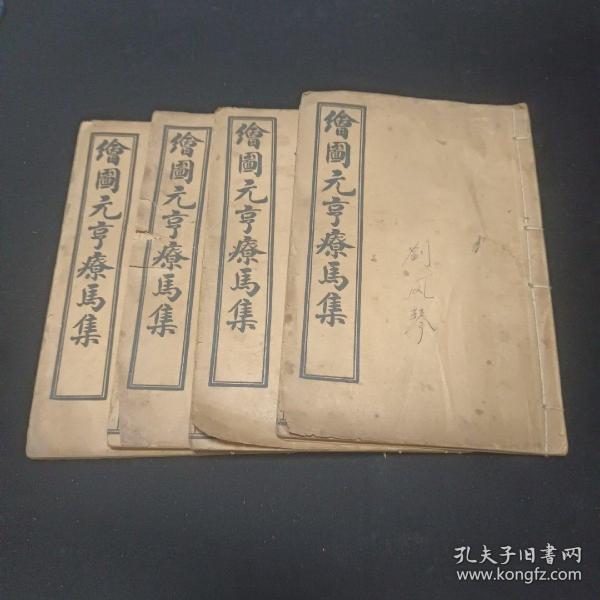 繪圖元亨療馬集
繪圖元亨療馬集
繪圖元亨療馬集
繪圖元亨療馬集
劉风琴
孔夫子旧书网
www.kongfz.com